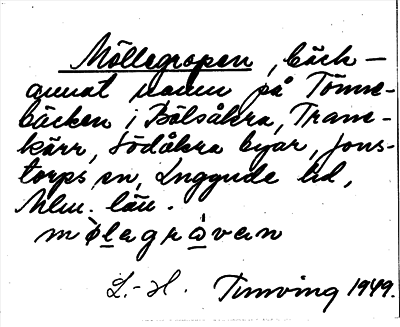 Möllegropen, bäck –
annat namn på Tönne-
bäcken i Bölsåkra, Trane-
kärr, Södåkra byar, Jons-
torps sn, Luggude hd,
Mlm. län.
mø̀legrǻvan
L.-H. Tunving 1949.